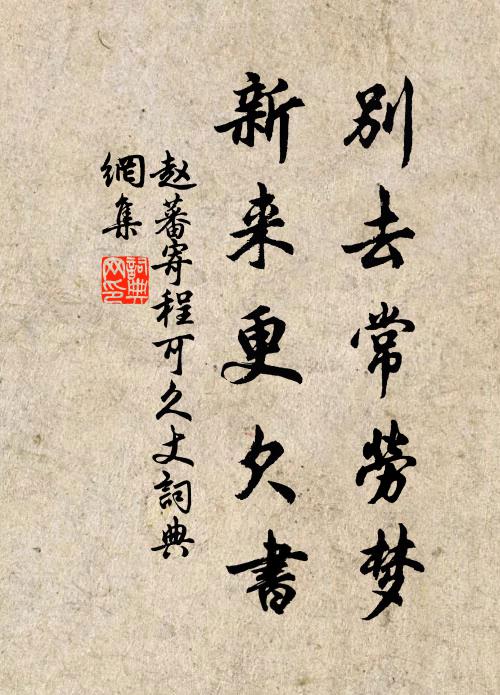 別去常劳梦
新来更欠書
赵蕃寄程可久丈詞典
網集
詞典
网印